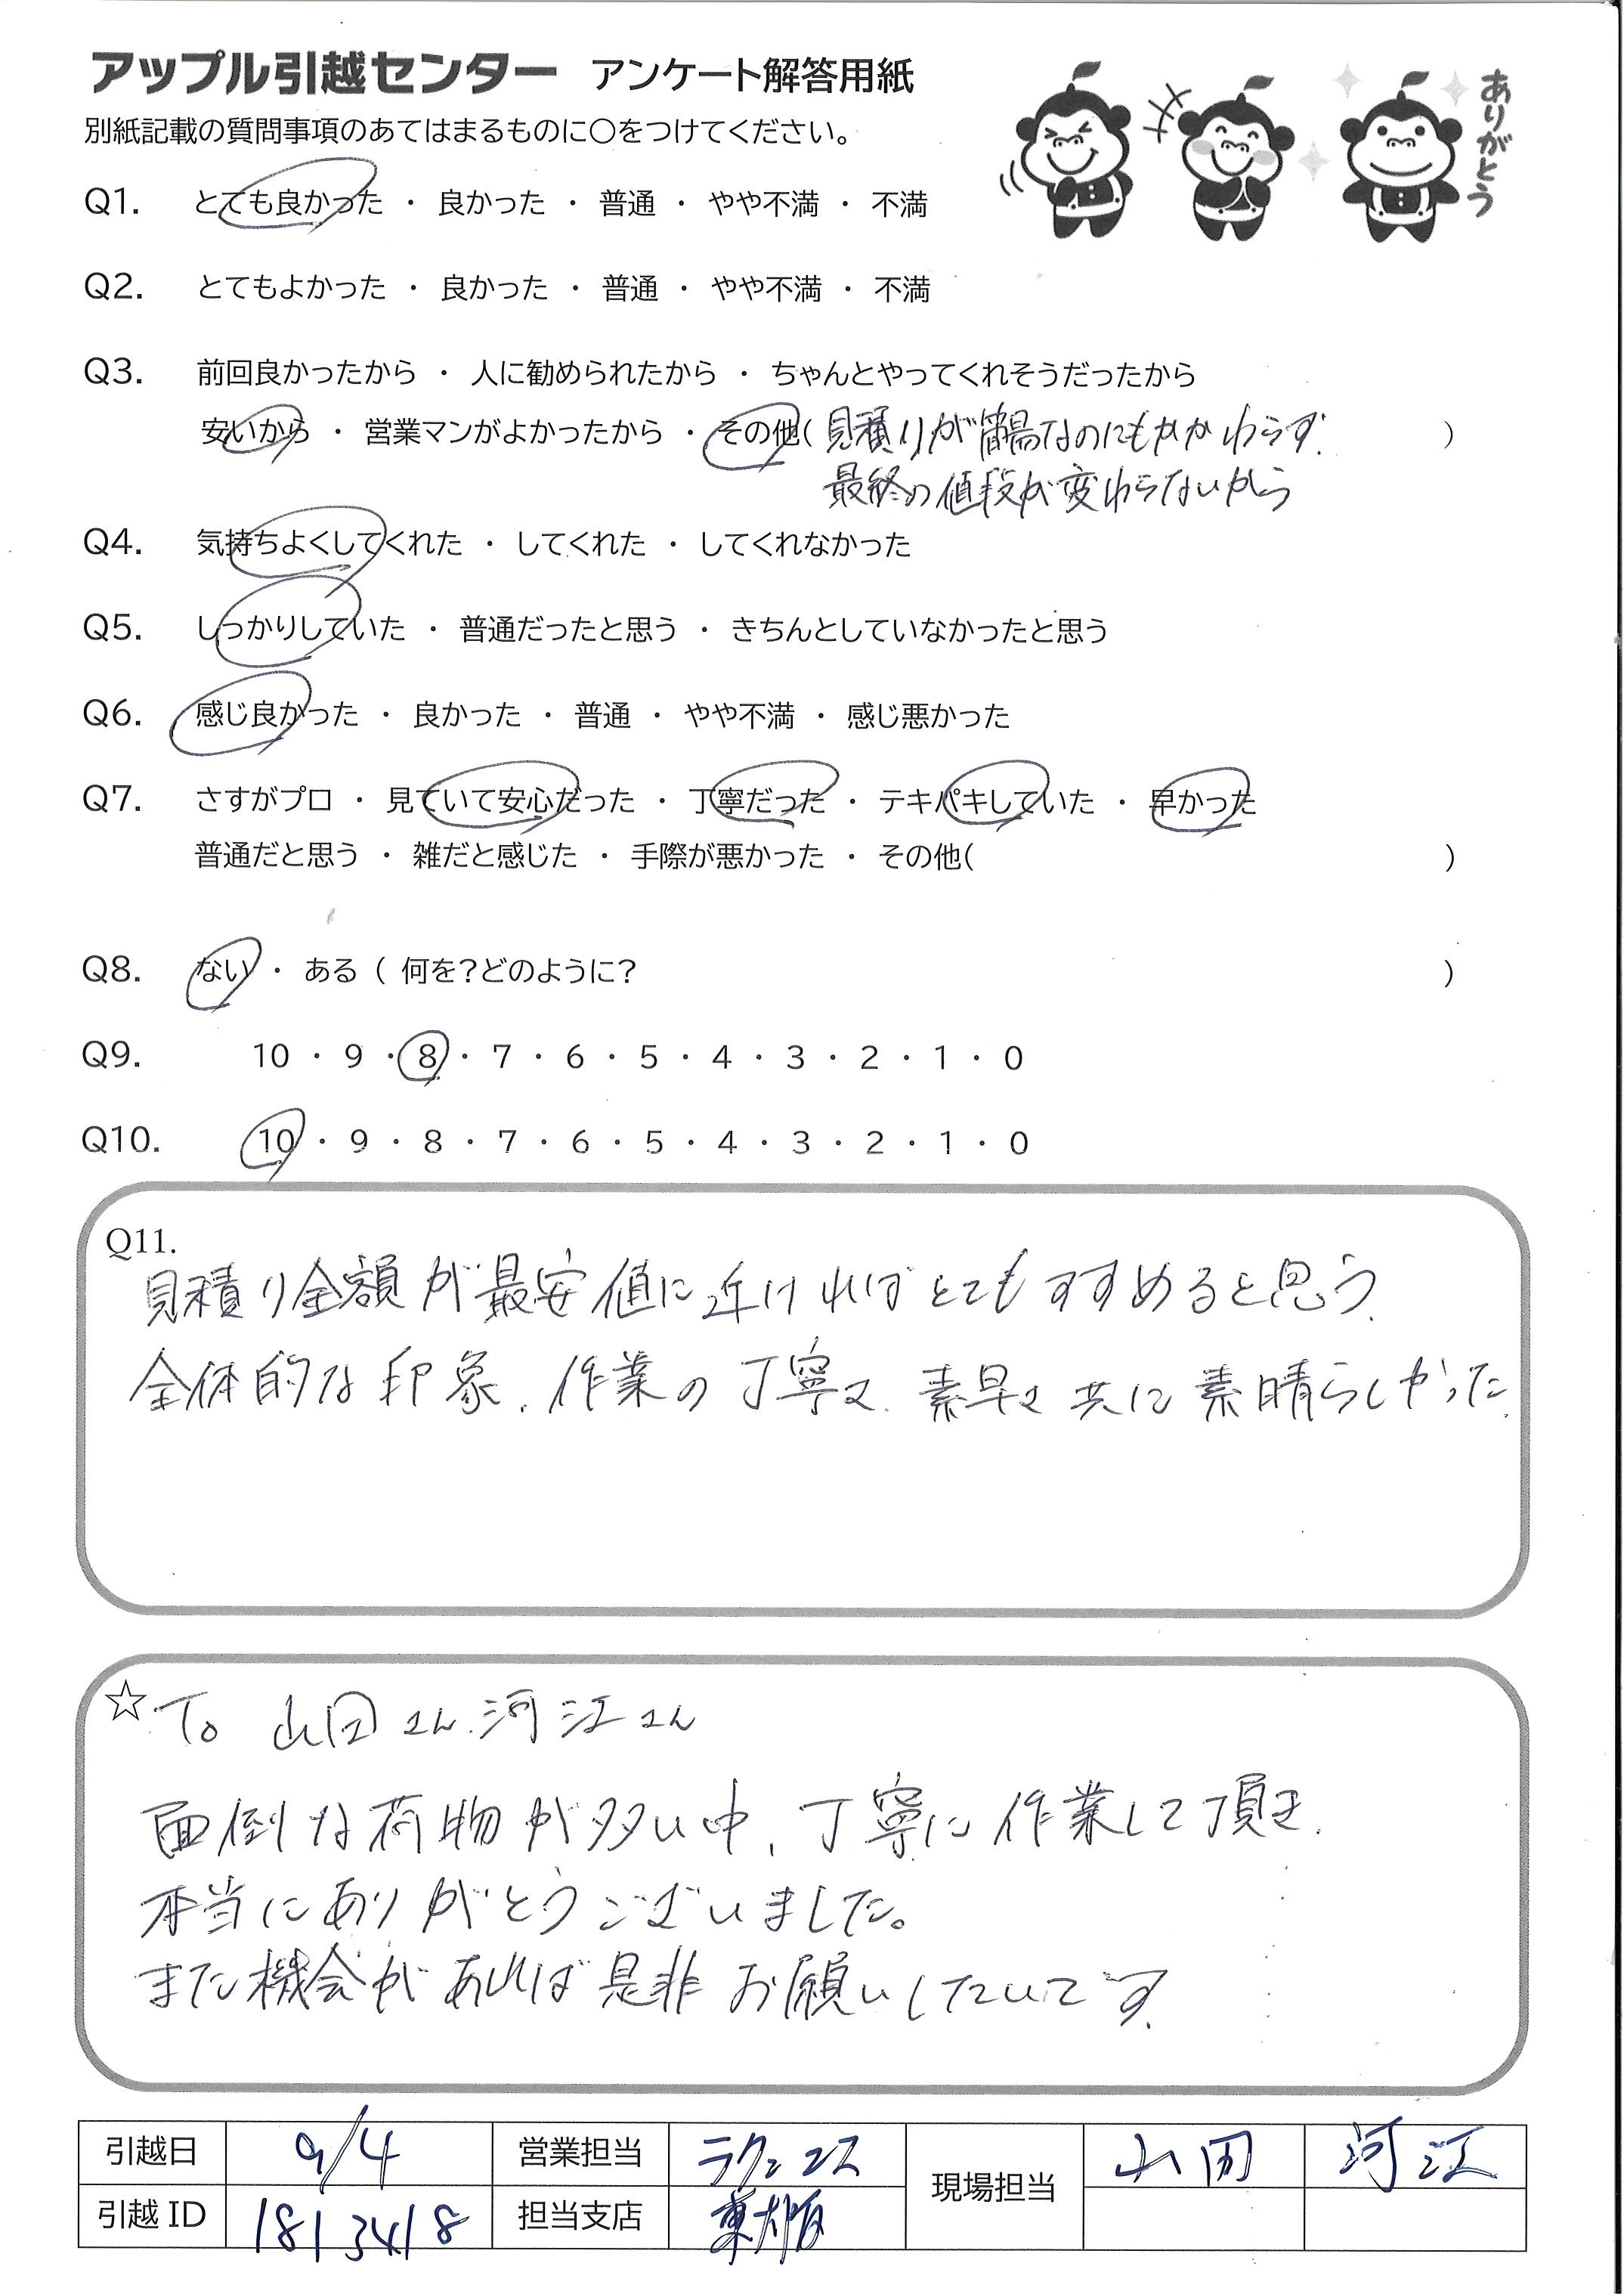 アップル引越センター アンケート解答用紙
別紙記載の質問事項のあてはまるものに○をつけてください。
ありがとう
Q1. とても良かった ・ 良かった ・ 普通 ・ やや不満 ・ 不満
Q2. とてもよかった ・ 良かった ・ 普通 ・ やや不満 ・ 不満
Q3. 前回良かったから ・ 人に勧められたから ・ ちゃんとやってくれそうだったから
安いから ・ 営業マンがよかったから ・ その他( 見積りが簡易なのにもかかわらず、 )
最終の値段が変わらないから
Q4. 気持ちよくしてくれた ・ してくれた ・ してくれなかった
Q5. しっかりしていた ・ 普通だったと思う ・ きちんとしていなかったと思う
Q6. 感じ良かった ・ 良かった ・ 普通 ・ やや不満 ・ 感じ悪かった
Q7. さすがプロ ・ 見ていて安心だった ・ 丁寧だった ・ テキパキしていた ・ 早かった
普通だと思う ・ 雑だと感じた ・ 手際が悪かった ・ その他( )
Q8. ない ・ ある ( 何を?どのように? )
Q9. 10 ・ 9 ・ 8 ・ 7 ・ 6 ・ 5 ・ 4 ・ 3 ・ 2 ・ 1 ・ 0
Q10. 10 ・ 9 ・ 8 ・ 7 ・ 6 ・ 5 ・ 4 ・ 3 ・ 2 ・ 1 ・ 0
Q11.
見積り金額が最安値に近ければとてもすすめると思う、
全体的な印象、作業の丁寧さ、素早さ共に素晴らしかった、
☆ To 山田さん、河江さん
面倒な荷物が多い中、丁寧に作業して頂き、
本当にありがとうございました。
また機会があれば是非お願いしたいです、
引越日 9/4 営業担当 ラクニコス 現場担当 山田 河江
引越ID 1813418 担当支店 東大阪